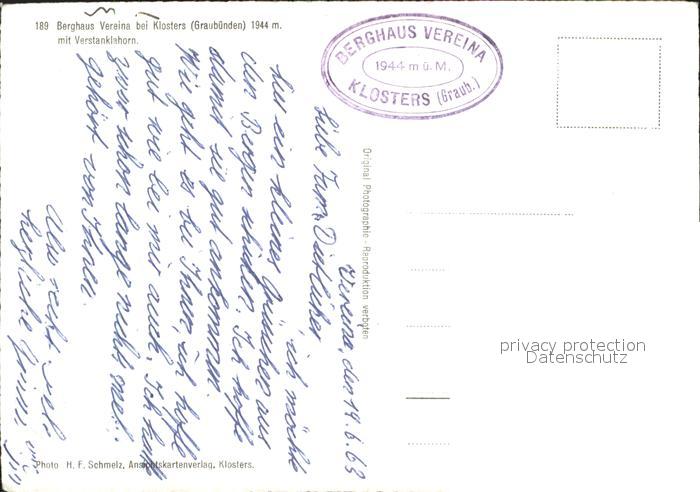 189 Berghaus Vereina bei Klosters (Graubünden) 1944 m.
mit Verstanklahorn.
BERGHAUS VEREINA
1944 m ü. M.
KLOSTERS (Graub.)
Vereina, den 14.6.63
Liebe
ich möchte
nur ein kleines Grüsschen aus
den Bergen schicken. Ich hoffe
damit sie gut ankommen.
Wie geht es bei Ihnen, ich hoffe
gut wie bei mir auch. Ich habe
zwar schon lange nichts mehr
gehört von Ihnen.
Also recht viele
herzliche Grüsse
Original Photographie - Reproduktion verboten
privacy protection
Datenschutz
Photo H. F. Schmelz, Ansichtskartenverlag, Klosters.